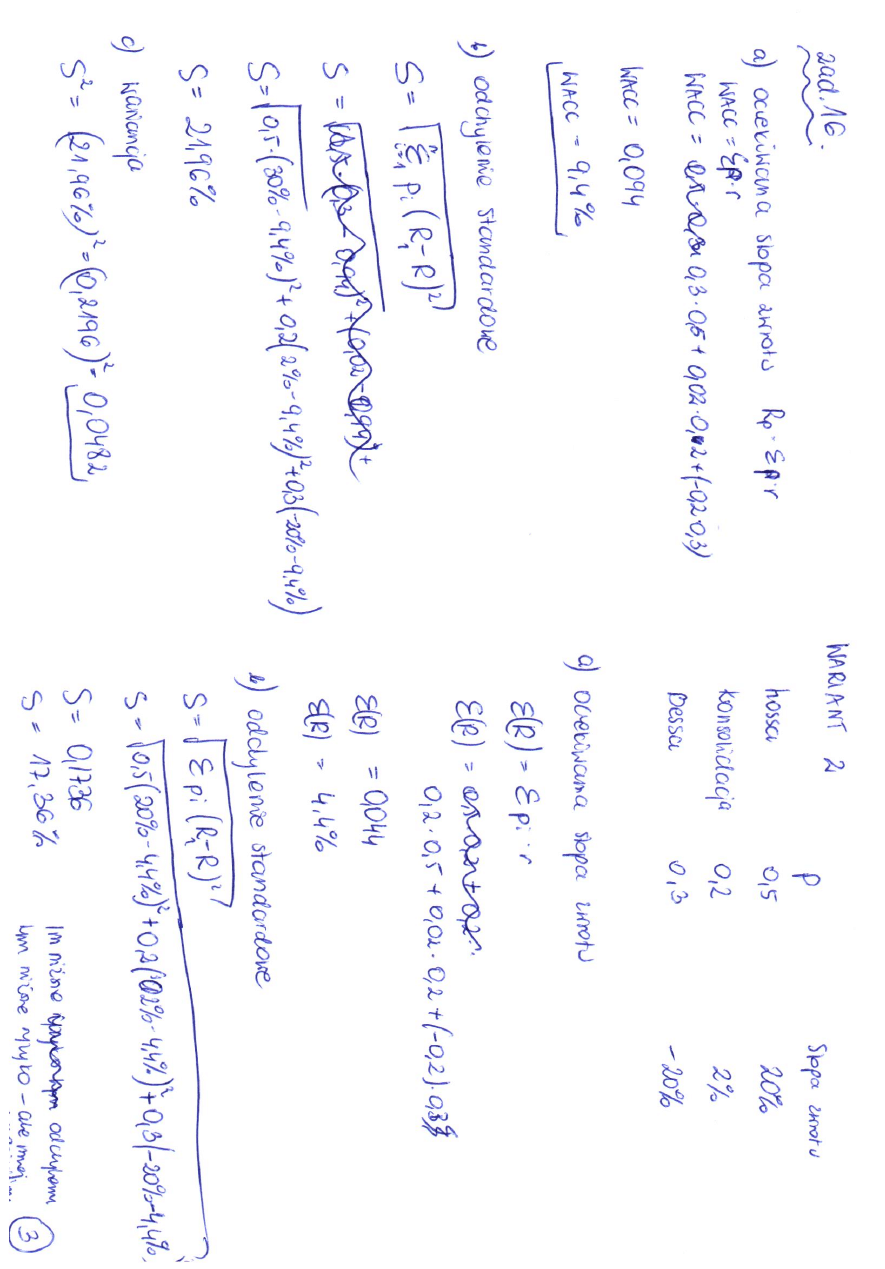 zad. 16.
a) oczekiwana stopa zwrotu Rp = Σp·r
WACC = Σp·r
WACC = 0,3·0,5 + 0,02·0,2 + (-0,2·0,3)
WACC = 0,094
WACC = 9,4%
b) odchylenie standardowe
S = √Σ pi (Ri-R)²
n
i=1
S = √0,5·(30%-9,4%)² + 0,2(2%-9,4%)² + 0,3(-20%-9,4%)
S = 21,96%
c) wariancja
S² = (21,96%)² = (0,2196)² = 0,0482
WARIANT 2
P Stopa zwrotu
hossa 0,5 20%
konsolidacja 0,2 2%
Bessa 0,3 -20%
a) oczekiwana stopa zwrotu
E(R) = Σ pi·r
E(R) =
0,2·0,5 + 0,02·0,2 + (-0,2)·0,3
E(R) = 0,044
E(R) = 4,4%
b) odchylenie standardowe
S = √Σ pi (Ri-R)²
S = √0,5(20%-4,4%)² + 0,2(2%-4,4%)² + 0,3(-20%-4,4%
S = 0,1736
S = 17,36%
Im niższe odchylenie
tym niższe ryzyko -
3